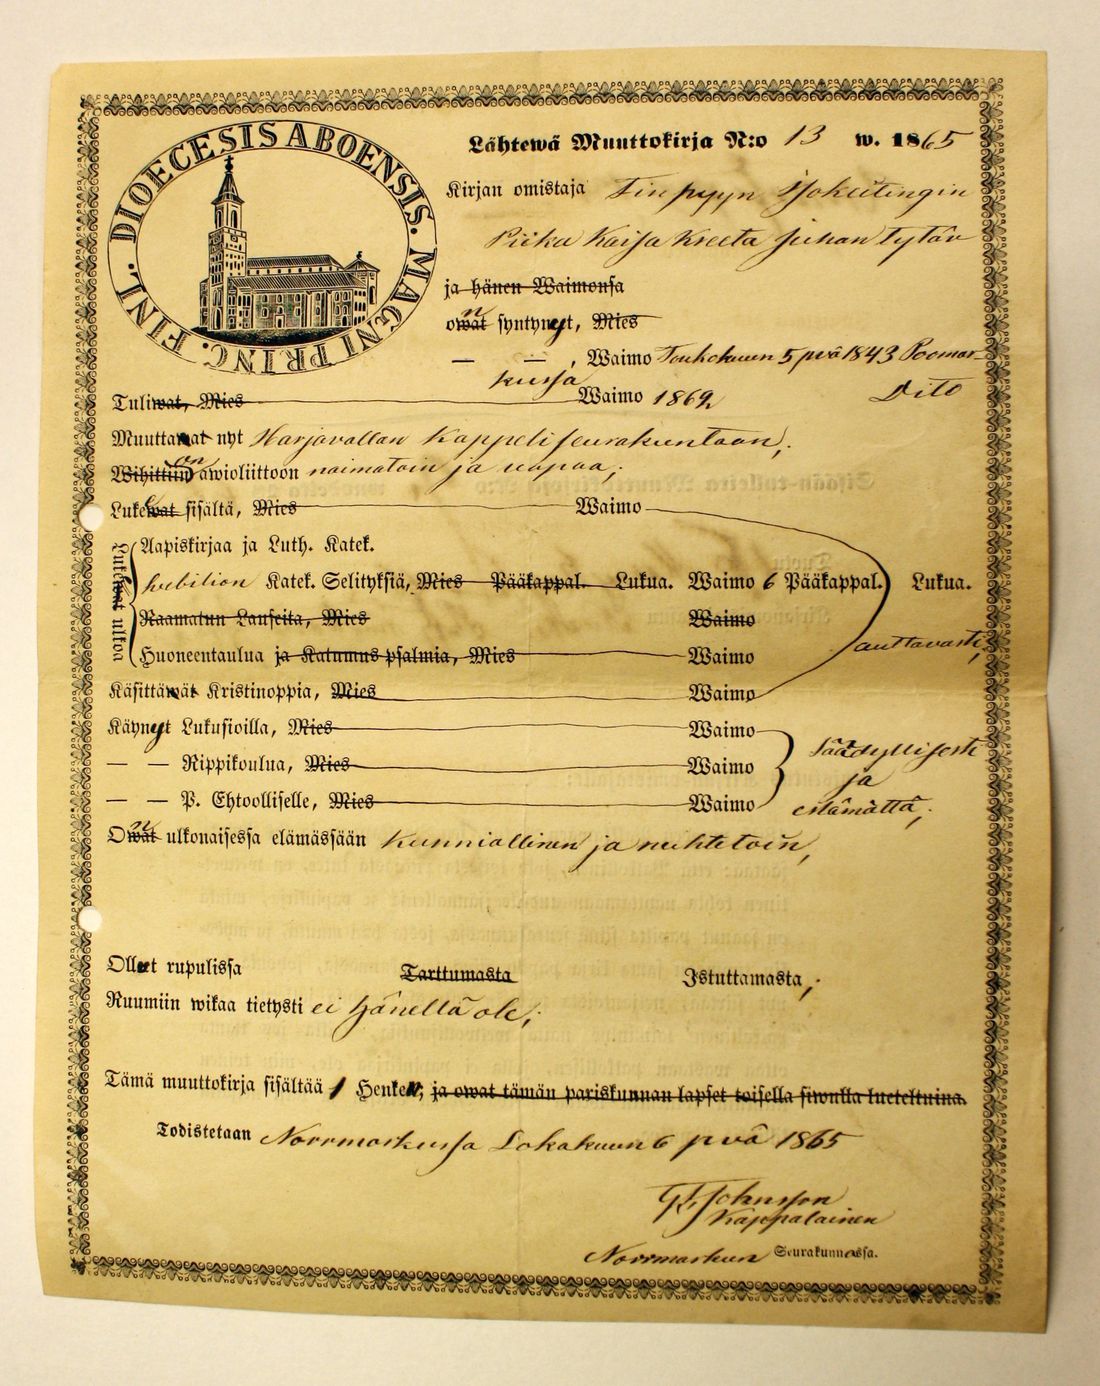 DIOECESIS ABOENSIS. MAGNI PRINC. FINL.
Lähtewä Muuttokirja N:o 13 w. 1865
Kirjan omistaja
Piika Kaisa Kreeta Juhan tytär
ja hänen Waimonsa
owat syntynyt, Mies
— — , Waimo Toukokuun 5 pvä 1843 Poomar-
kussa
Tuliwat, Mies Waimo 1862 Dito
Muuttawat nyt Harjavallan Kappeliseurakuntaan,
Wihittiin on awioliittoon naimatoin ja vapaa;
Lukewat sisältä, Mies Waimo
Lukewat ulkoa
Aapiskirjaa ja Luth. Katek.
Katek. Selityksiä, Mies Pääkappal. Lukua. Waimo 6 Pääkappal. Lukua.
Raamatun Lauseita, Mies Waimo
Huoneentaulua ja Katumus psalmia, Mies Waimo auttavasti,
Käsittäwät Kristinoppia, Mies Waimo
Käynyt Lukusioilla, Mies Waimo
— — Rippikoulua, Mies Waimo
— — P. Ehtoolliselle, Mies Waimo
säädyllisesti
ja
estämättä;
Owat ulkonaisessa elämässään kunniallinen ja nuhtetoin,
Ollut rupulissa Tarttumasta Istuttamasta;
Ruumiin wikaa tietysti ei hänellä ole;
Tämä muuttokirja sisältää 1 Henken, ja owat tämän pariskunnan lapset toisella siwulla lueteltuina.
Todistetaan Norrmarkussa Lokakuun 6 pvä 1865
Johnsson
Kappalainen
Norrmarkun Seurakunnassa.